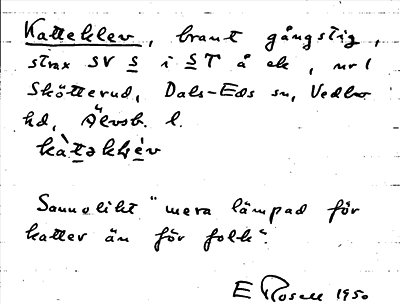 Katteklev, brant gångstig,
strax SV s i ST å ek, nr 1
Skötterud, Dals-Eds sn, Vedbo
hd, Älvsb. l.
kàtəkḷèv
Sannolikt "mera lämpad för
katter än för folk".
E Rosell 1950